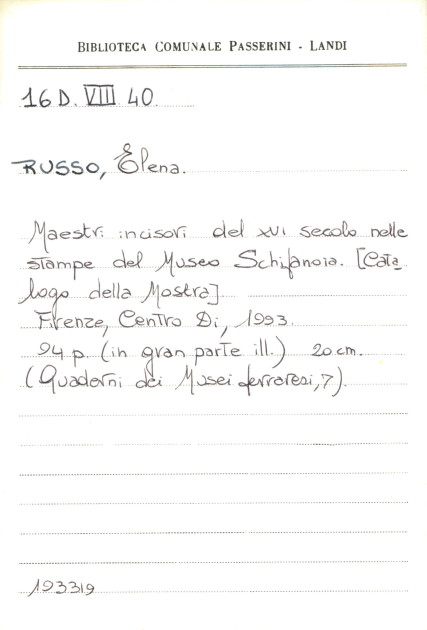 BIBLIOTECA COMUNALE PASSERINI - LANDI
16 D. VIII 40.
RUSSO, Elena.
Maestri incisori del XVI secolo nelle
stampe del Museo Schifanoia. [Cata
logo della Mostra]
Firenze, Centro Di, 1993.
94 p. (in gran parte ill.) 20 cm.
(Quaderni dei Musei ferraresi, 7).
193319